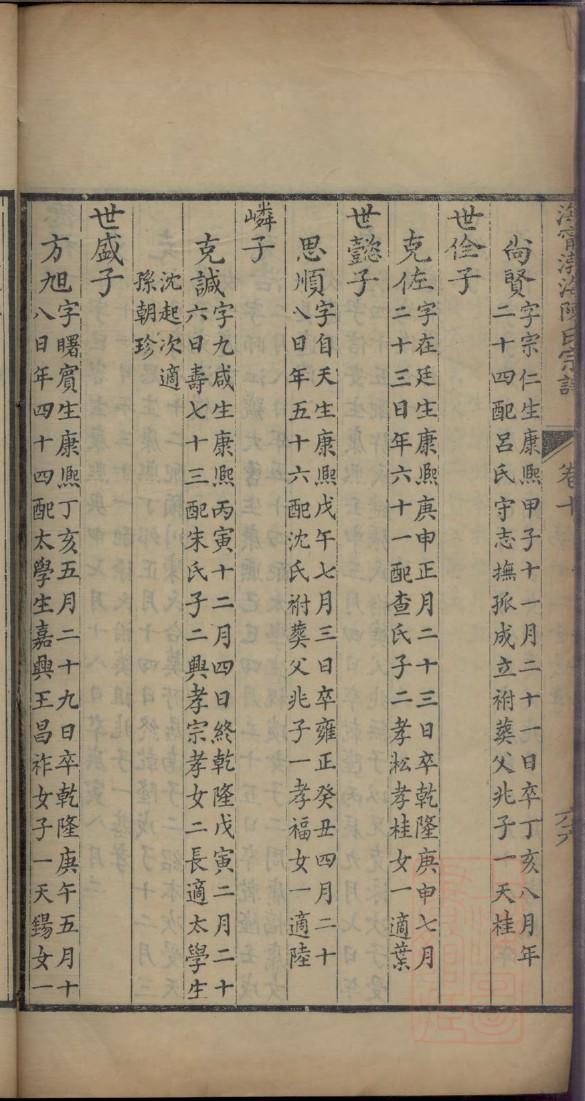 海寧渤海陳氏宗譜
卷十
六六
尚賢
字宗仁生康熙甲子十一月二十一日卒丁亥八月年
二十四配呂氏守志撫孤成立祔葬父兆子一天桂
世佺子
克佐
字在廷生康熙庚申正月二十三日卒乾隆庚申七月
二十三日年六十一配查氏子二孝松孝桂女一適葉
世懿子
思順
字自天生康熙戊午七月三日卒雍正癸丑四月二十
八日年五十六配沈氏祔葬父兆子一孝福女一適陸
嶙子
克諴
字九咸生康熙丙寅十二月四日終乾隆戊寅二月二十
六日壽七十三配朱氏子二興孝宗孝女二長適太學生
沈起次適
孫朝珍
世盛子
方旭
字曙賓生康熙丁亥五月二十九日卒乾隆庚午五月十
八日年四十四配太學生嘉興王昌祚女子一天錫女一